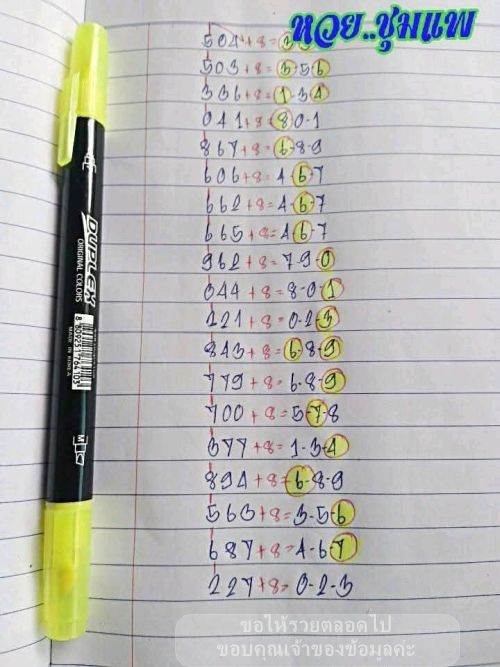 หวย..ชุมแพ
504+8=3
503+8=3-5-6
336+8=1-3-4
041+8=8-0-1
867+8=6-8-9
606+8=4-6-7
662+8=4-6-7
665+8=4-6-7
962+8=7-9-0
044+8=8-0-1
221+8=0-2-3
843+8=6-8-9
779+8=6-8-9
700+8=5-7-8
377+8=1-3-4
894+8=6-8-9
563+8=3-5-6
687+8=4-6-7
227+8=0-2-3
DUPLEX
ORIGINAL COLORS
MADE IN KOREA
M
ขอให้รวยตลอดไป
ขอบคุณเจ้าของข้อมูลค่ะ